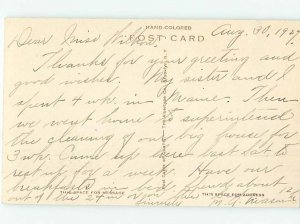 HAND-COLORED
POST CARD
Aug. 30, 1929
Dear Miss Wilson,
Thanks for your greeting and
good wishes. My sister and I
spent 4 wk. in Maine. Then
we went home & superintend
the cleaning of our big house for
3 wk. Came up here last Sat to
rest up for a week. Have our
breakfasts in bed
THIS SPACE FOR MESSAGE
THIS SPACE FOR ADDRESS
out of the 24
Sincerely